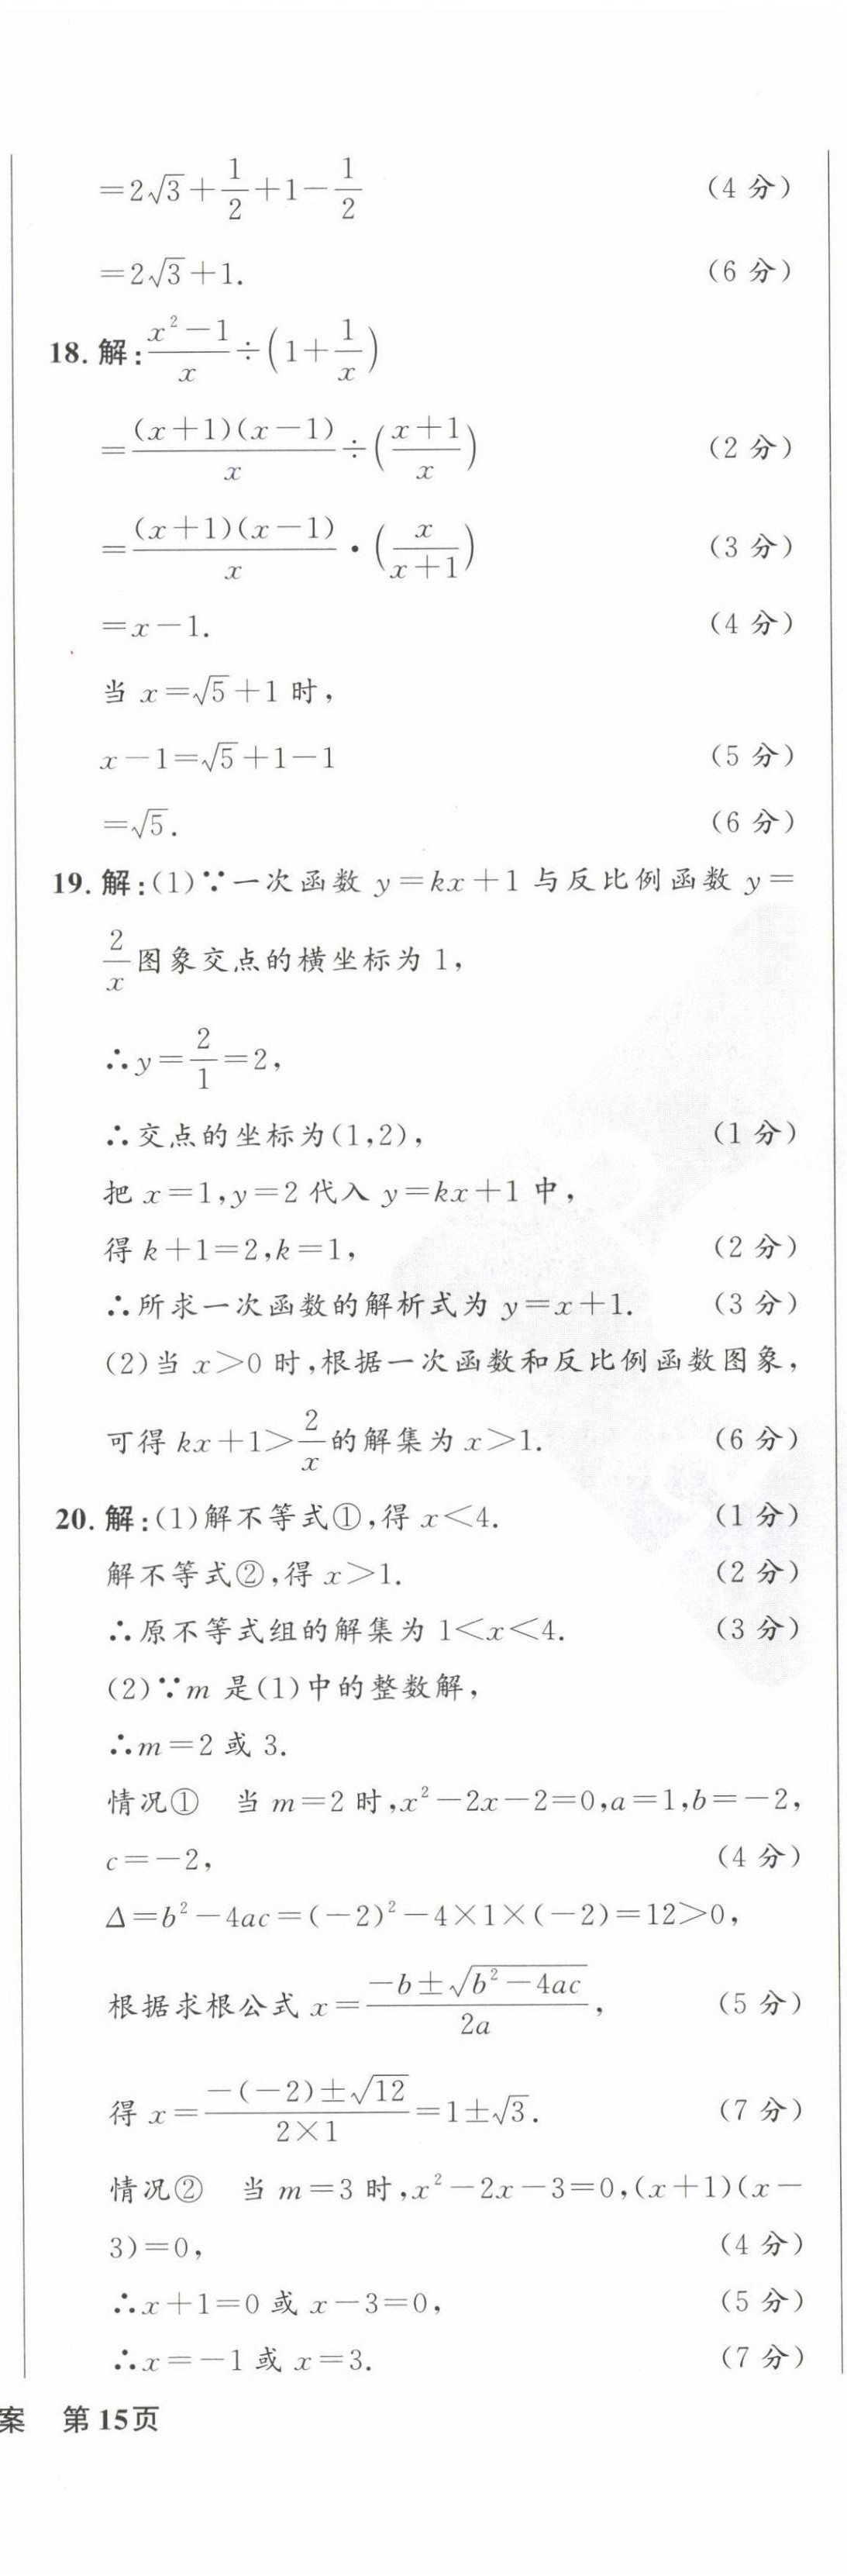 =2√3+1/2+1-1/2 (4分)
=2√3+1. (6分)
18. 解:(x²-1)/x÷(1+1/x)
=(x+1)(x-1)/x÷((x+1)/x) (2分)
=(x+1)(x-1)/x·(x/(x+1)) (3分)
=x-1. (4分)
当 x=√5+1 时,
x-1=√5+1-1 (5分)
=√5. (6分)
19. 解:(1)∵一次函数 y=kx+1 与反比例函数 y=
2/x图象交点的横坐标为 1,
∴y=2/1=2,
∴交点的坐标为(1,2), (1分)
把 x=1,y=2 代入 y=kx+1 中,
得 k+1=2,k=1, (2分)
∴所求一次函数的解析式为 y=x+1. (3分)
(2)当 x>0 时,根据一次函数和反比例函数图象,
可得 kx+1>2/x的解集为 x>1. (6分)
20. 解:(1)解不等式①,得 x<4. (1分)
解不等式②,得 x>1. (2分)
∴原不等式组的解集为 1<x<4. (3分)
(2)∵m 是(1)中的整数解,
∴m=2 或 3.
情况① 当 m=2 时,x²-2x-2=0,a=1,b=-2,
c=-2, (4分)
Δ=b²-4ac=(-2)²-4×1×(-2)=12>0,
根据求根公式 x=(-b±√(b²-4ac))/2a, (5分)
得 x=(-(-2)±√12)/(2×1)=1±√3. (7分)
情况② 当 m=3 时,x²-2x-3=0,(x+1)(x-
3)=0, (4分)
∴x+1=0 或 x-3=0, (5分)
∴x=-1 或 x=3. (7分)
案 第15页